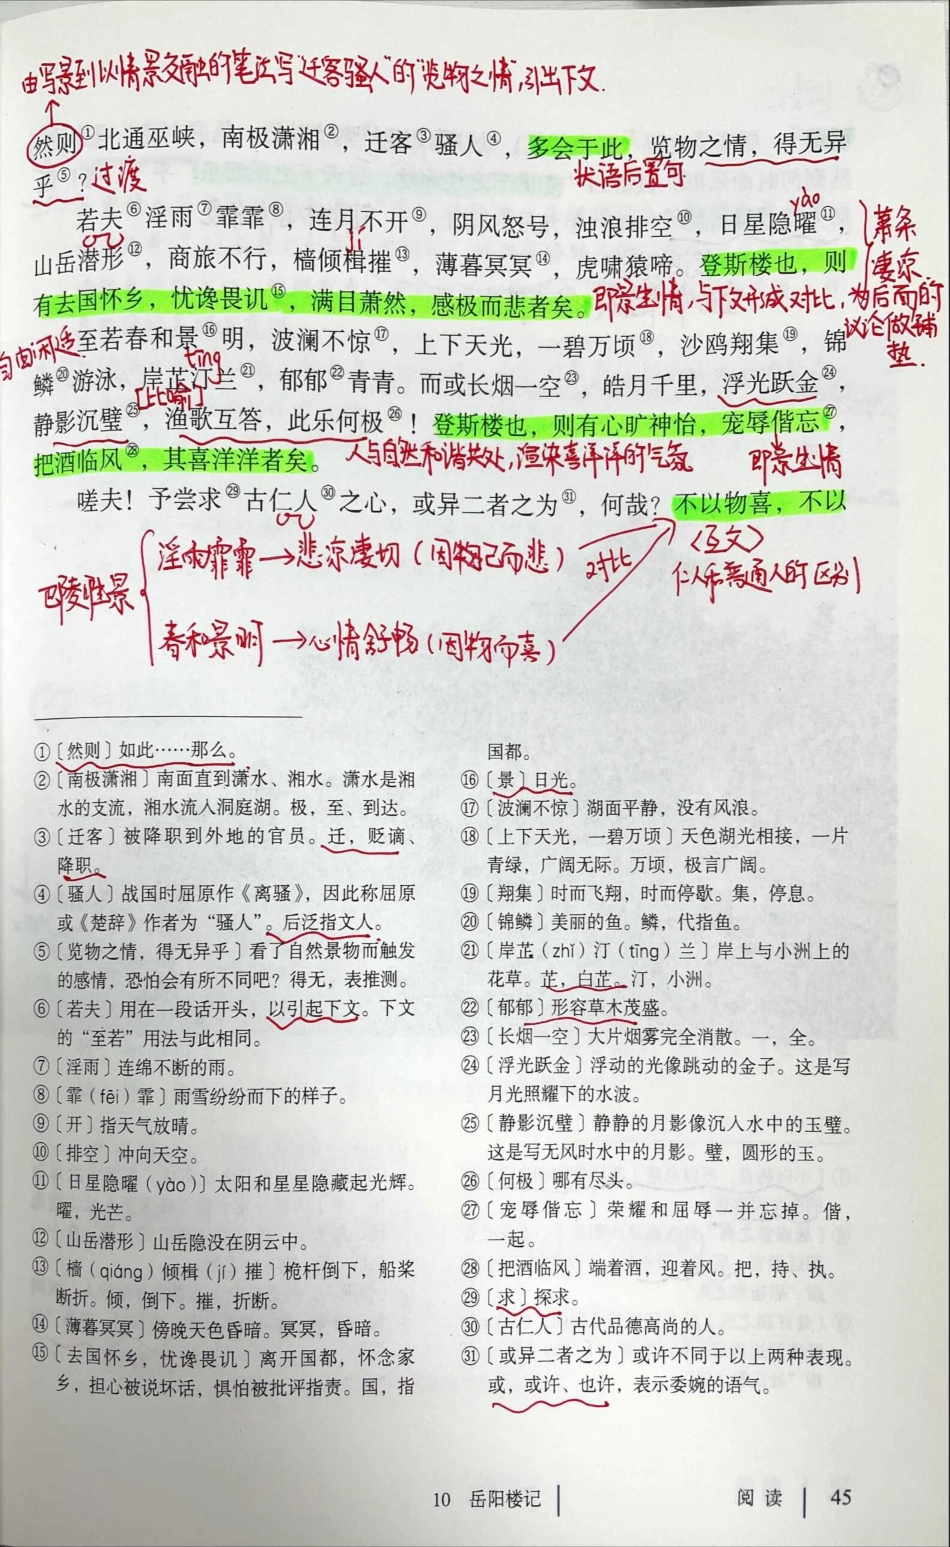 由写景到以情景交融的笔法写“迁客骚人”的“览物之情”,引出下文.
然则①北通巫峡，南极潇湘②，迁客③骚人④，多会于此，览物之情，得无异
乎⑤？过渡
状语后置句
yào
若夫⑥淫雨⑦霏霏⑧，连月不开⑨，阴风怒号，浊浪排空⑩，日星隐曜⑪，
萧条
jí
山岳潜形⑫，商旅不行，樯倾楫摧⑬，薄暮冥冥⑭，虎啸猿啼。登斯楼也，则
凄凉.
有去国怀乡，忧谗畏讥⑮，满目萧然，感极而悲者矣。
即景生情,与下文形成对比,为后面的
议论做铺
垫.
自由闲适
至若春和景⑯明，波澜不惊⑰，上下天光，一碧万顷⑱，沙鸥翔集⑲，锦
tīng
鳞⑳游泳，岸芷汀兰㉑，郁郁㉒青青。而或长烟一空㉓，皓月千里，浮光跃金㉔，
[比喻]
静影沉璧㉕，渔歌互答，此乐何极㉖！登斯楼也，则有心旷神怡，宠辱偕忘㉗，
把酒临风㉘，其喜洋洋者矣。
人与自然和谐共处,渲染喜洋洋的气氛
即景生情
嗟夫！予尝求㉙古仁人㉚之心，或异二者之为㉛，何哉？不以物喜，不以
〈互文〉
仁人和普通人的区别
巴陵胜景
淫雨霏霏→悲凉凄切(因物己而悲)
对比
春和景明→心情舒畅(因物而喜)
①〔然则〕如此……那么。
②〔南极潇湘〕南面直到潇水、湘水。潇水是湘
水的支流，湘水流入洞庭湖。极，至、到达。
③〔迁客〕被降职到外地的官员。迁，贬谪、
降职。
④〔骚人〕战国时屈原作《离骚》，因此称屈原
或《楚辞》作者为“骚人”。后泛指文人。
⑤〔览物之情，得无异乎〕看了自然景物而触发
的感情，恐怕会有所不同吧？得无，表推测。
⑥〔若夫〕用在一段话开头，以引起下文。下文
的“至若”用法与此相同。
⑦〔淫雨〕连绵不断的雨。
⑧〔霏（fēi）霏〕雨雪纷纷而下的样子。
⑨〔开〕指天气放晴。
⑩〔排空〕冲向天空。
⑪〔日星隐曜（yào）〕太阳和星星隐藏起光辉。
曜，光芒。
⑫〔山岳潜形〕山岳隐没在阴云中。
⑬〔樯（qiáng）倾楫（jí）摧〕桅杆倒下，船桨
断折。倾，倒下。摧，折断。
⑭〔薄暮冥冥〕傍晚天色昏暗。冥冥，昏暗。
⑮〔去国怀乡，忧谗畏讥〕离开国都，怀念家
乡，担心被说坏话，惧怕被批评指责。国，指
国都。
⑯〔景〕日光。
⑰〔波澜不惊〕湖面平静，没有风浪。
⑱〔上下天光，一碧万顷〕天色湖光相接，一片
青绿，广阔无际。万顷，极言广阔。
⑲〔翔集〕时而飞翔，时而停歇。集，停息。
⑳〔锦鳞〕美丽的鱼。鳞，代指鱼。
㉑〔岸芷（zhǐ）汀（tīng）兰〕岸上与小洲上的
花草。芷，白芷。汀，小洲。
㉒〔郁郁〕形容草木茂盛。
㉓〔长烟一空〕大片烟雾完全消散。一，全。
㉔〔浮光跃金〕浮动的光像跳动的金子。这是写
月光照耀下的水波。
㉕〔静影沉璧〕静静的月影像沉入水中的玉璧。
这是写无风时水中的月影。璧，圆形的玉。
㉖〔何极〕哪有尽头。
㉗〔宠辱偕忘〕荣耀和屈辱一并忘掉。偕，
一起。
㉘〔把酒临风〕端着酒，迎着风。把，持、执。
㉙〔求〕探求。
㉚〔古仁人〕古代品德高尚的人。
㉛〔或异二者之为〕或许不同于以上两种表现。
或，或许、也许，表示委婉的语气。
10 岳阳楼记
阅读 45